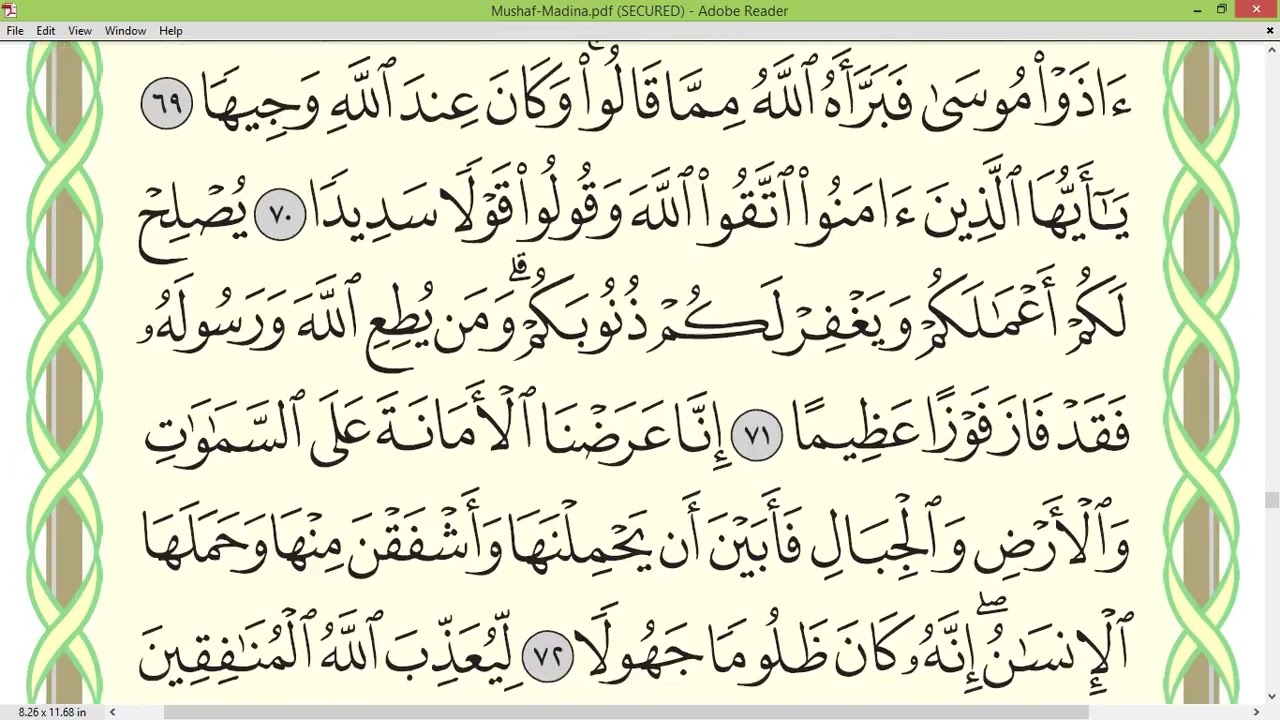 Mushaf-Madina.pdf (SECURED) - Adobe Reader
File Edit View Window Help
ءَاذَوْا۟ مُوسَىٰ فَبَرَّأَهُ ٱللَّهُ مِمَّا قَالُوا۟ ۚ وَكَانَ عِندَ ٱللَّهِ وَجِيهًا ٦٩
يَـٰٓأَيُّهَا ٱلَّذِينَ ءَامَنُوا۟ ٱتَّقُوا۟ ٱللَّهَ وَقُولُوا۟ قَوْلًا سَدِيدًا ٧٠ يُصْلِحْ
لَكُمْ أَعْمَـٰلَكُمْ وَيَغْفِرْ لَكُمْ ذُنُوبَكُمْ ۗ وَمَن يُطِعِ ٱللَّهَ وَرَسُولَهُۥ
فَقَدْ فَازَ فَوْزًا عَظِيمًا ٧١ إِنَّا عَرَضْنَا ٱلْأَمَانَةَ عَلَى ٱلسَّمَـٰوَٰتِ
وَٱلْأَرْضِ وَٱلْجِبَالِ فَأَبَيْنَ أَن يَحْمِلْنَهَا وَأَشْفَقْنَ مِنْهَا وَحَمَلَهَا
ٱلْإِنسَـٰنُ ۖ إِنَّهُۥ كَانَ ظَلُومًا جَهُولًا ٧٢ لِّيُعَذِّبَ ٱللَّهُ ٱلْمُنَـٰفِقِينَ
8.26 x 11.68 in